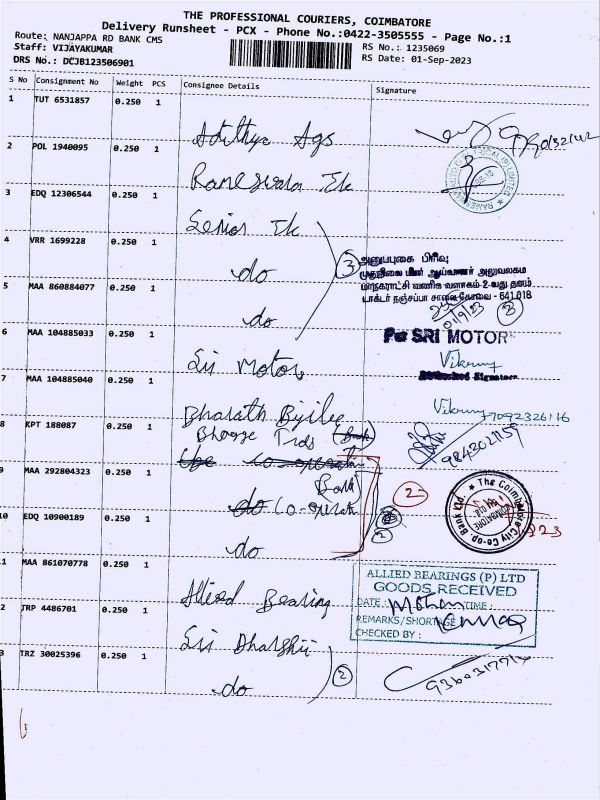 THE PROFESSIONAL COURIERS, COIMBATORE
Delivery Runsheet - PCX - Phone No.:0422-3505555 - Page No.:1
Route: NANJAPPA RD BANK CMS
RS No.: 1235069
Staff: VIJAYAKUMAR
RS Date: 01-Sep-2023
DRS No.: DCJB123506901
S No Consignment No Weight PCS Consignee Details Signature
1 TUT 6531857 0.250 1 Adithya Ags
2 POL 1940095 0.250 1 Rameswara Ek
3 EDQ 12306544 0.250 1 Senior Ek
4 VRR 1699228 0.250 1 do
3
அனுப்புகை பிரிவு
முதுநிலை மின் ஆய்வாளர் அலுவலகம்
மாநகராட்சி வணிக வளாகம் 2-வது தளம்
டாக்டர் நஞ்சப்பா சாலை, கோவை - 641 018
5 MAA 860884077 0.250 1 do
01/9/23
3
For SRI MOTOR
6 MAA 104885033 0.250 1 Sri Motors
Vikram
Authorised Signatory
7 MAA 104885040 0.250 1 Bharath Bijilee
Vikram 7092326116
8 KPT 188087 0.250 1 Bhooge Trds (Bank)
9843021159
the co-operate
9 MAA 292804323 0.250 1 Bank
do Co-operate
2
The Coimbatore City Co-op. Bank Ltd.
10 EDQ 10900189 0.250 1 do
2
1 MAA 861070778 0.250 1 Allied Bearing
ALLIED BEARINGS (P) LTD
GOODS RECEIVED
DATE : Mohan TIME :
REMARKS/SHORTAGE
CHECKED BY :
2 TRP 4486701 0.250 1 Sri Dharshii
3 TRZ 30025396 0.250 1 do
2